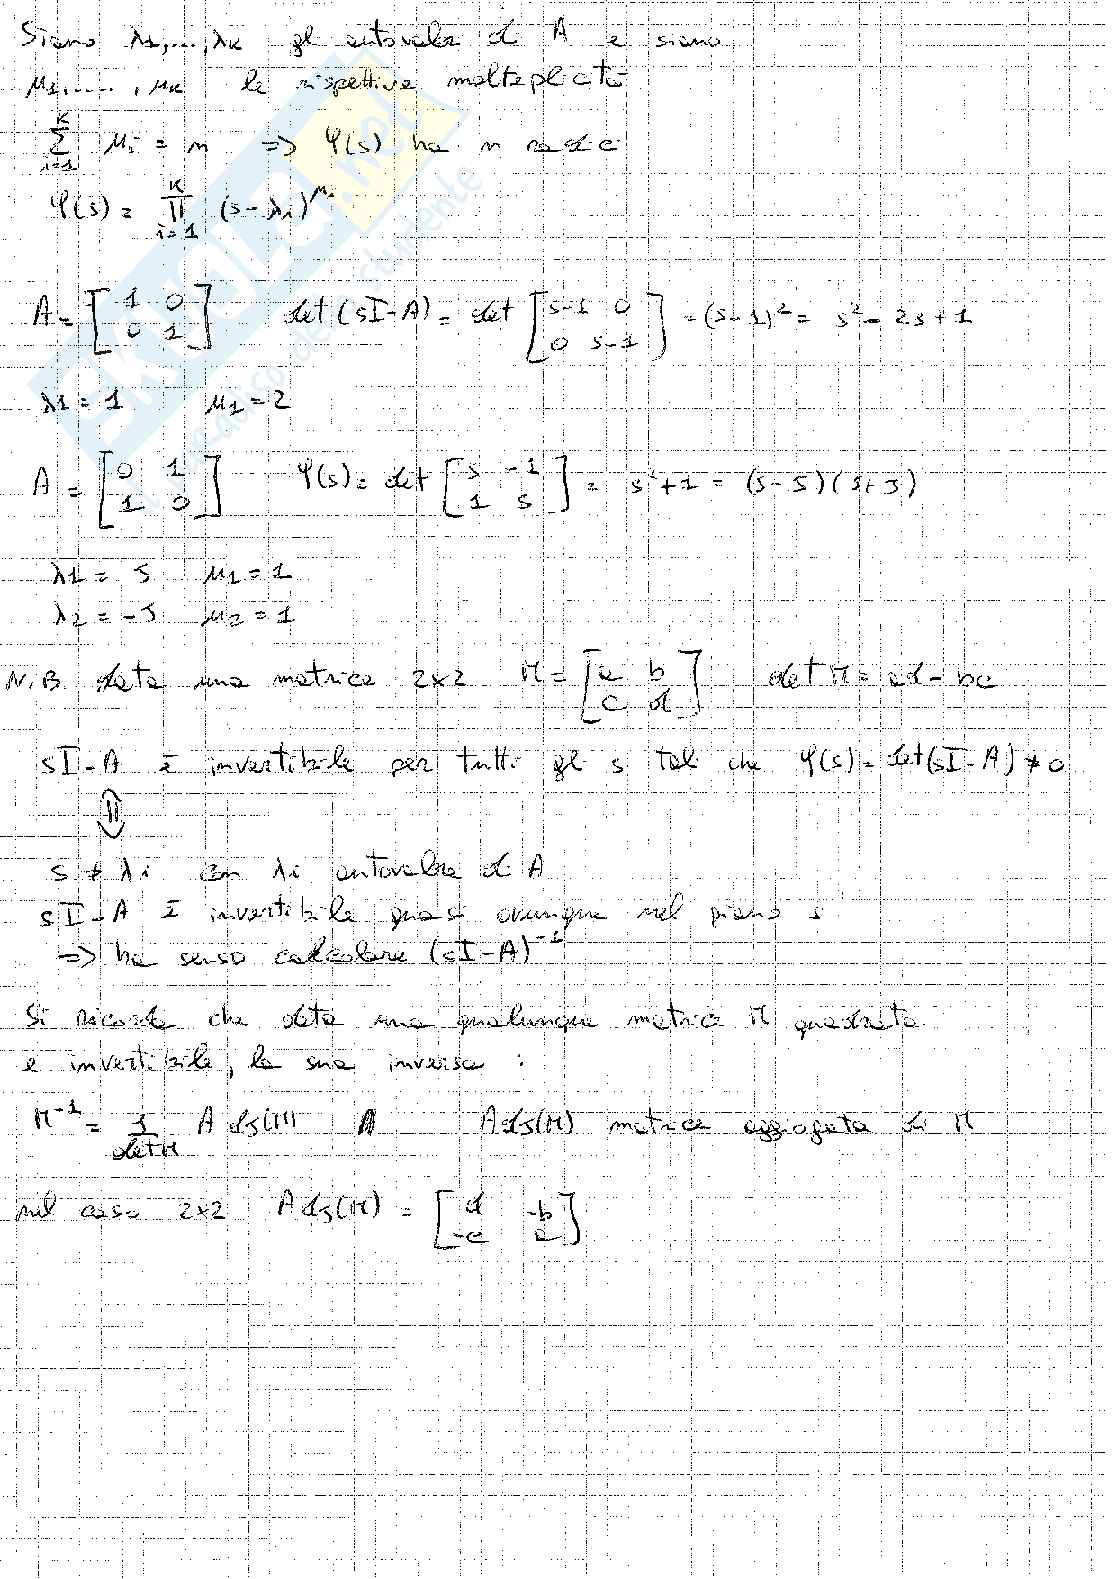 Siano λ1,...,λk gli autovalori di A e siano
μ1,....,μk le rispettive molteplicità
∑_{i=1}^{k} μi = n => φ(s) ha n radici
φ(s) = ∏_{i=1}^{k} (s-λi)^{μi}
A = [1 0; 0 1] det(sI-A) = det [s-1 0; 0 s-1] = (s-1)² = s²-2s+1
λ1 = 1 μ1 = 2
A = [0 1; -1 0] φ(s) = det [s -1; 1 s] = s²+1 = (s-j)(s+j)
λ1 = j μ1 = 1
λ2 = -j μ2 = 1
N.B. data una matrice 2x2 M = [a b; c d] det M = ad-bc
sI-A è invertibile per tutti gli s tali che φ(s) = det(sI-A) ≠ 0
⇕
s ≠ λi con λi autovalore di A
sI-A è invertibile quasi ovunque nel piano s
=> ha senso calcolare (sI-A)^{-1}
Si ricorda che data una qualunque matrice M quadrata
e invertibile, la sua inversa :
M^{-1} = 1/detM Adj(M) Adj(M) matrice aggiogata di M
nel caso 2x2 Adj(M) = [d -b; -c a]